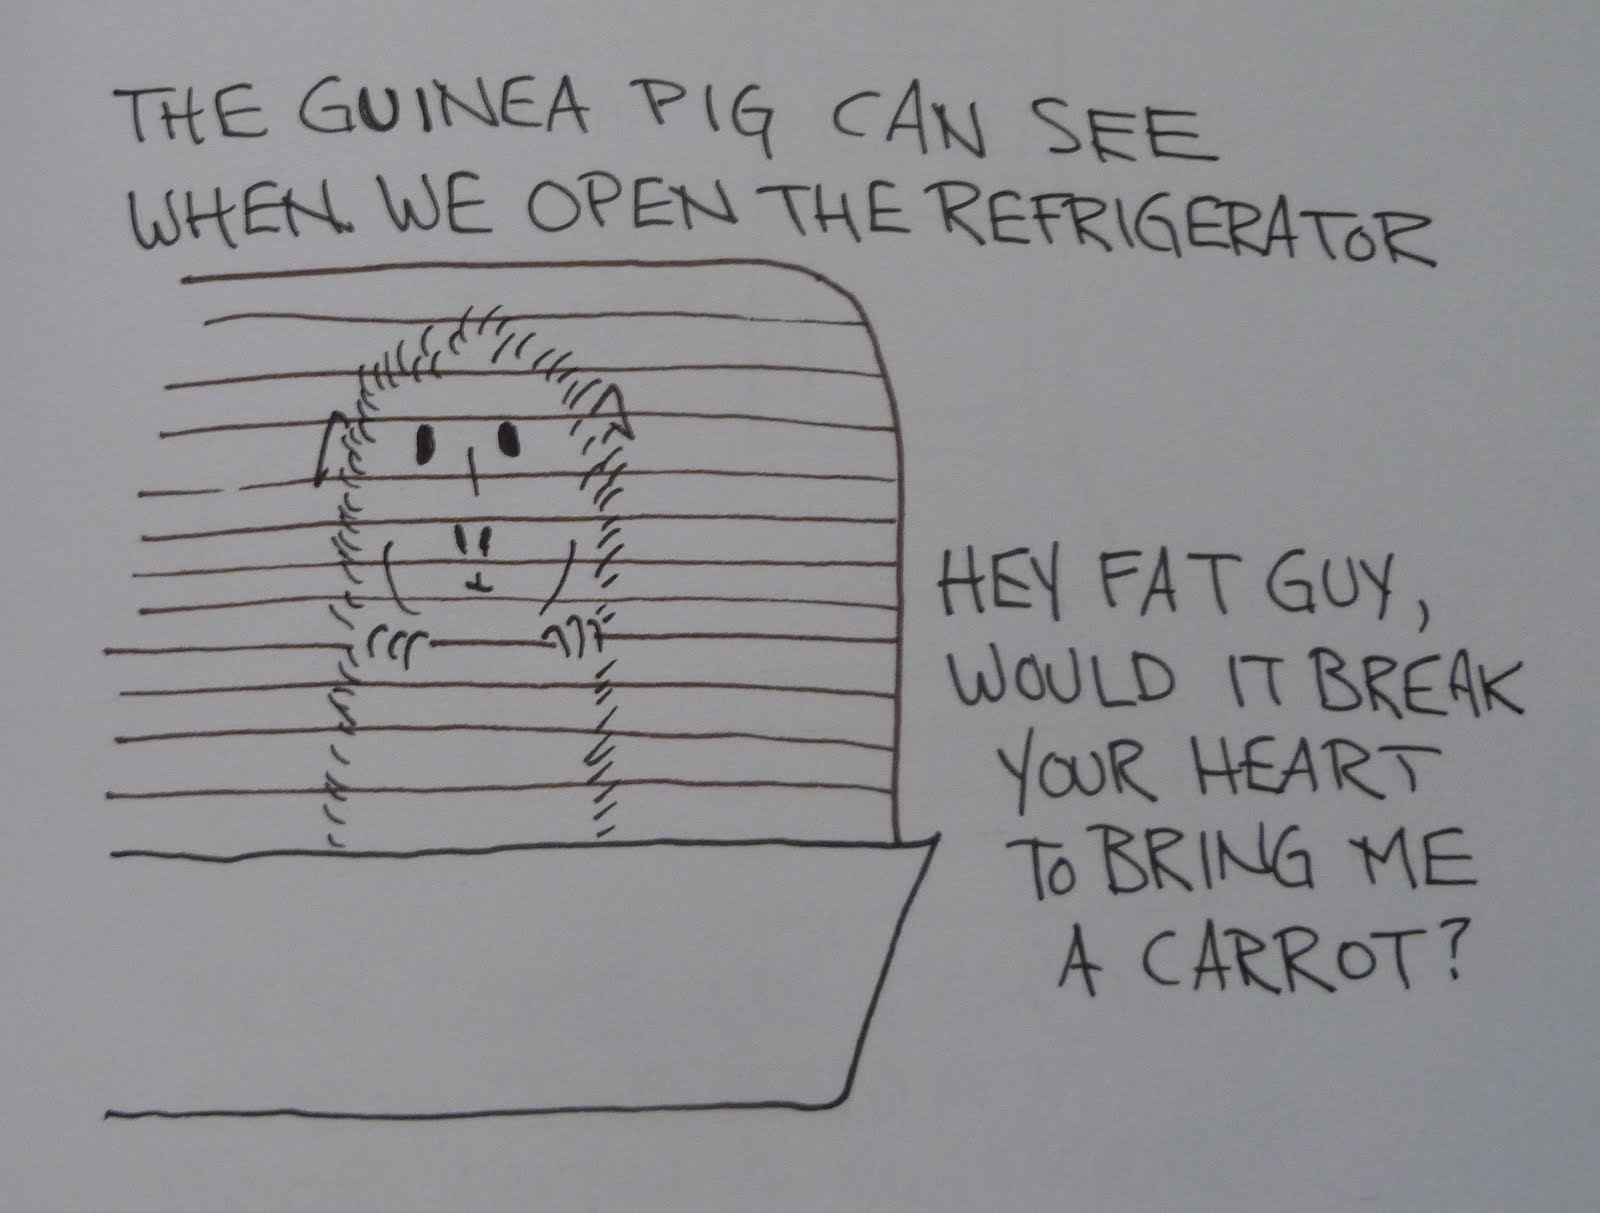 THE GUINEA PIG CAN SEE
WHEN WE OPEN THE REFRIGERATOR
HEY FAT GUY,
WOULD IT BREAK
YOUR HEART
TO BRING ME
A CARROT?